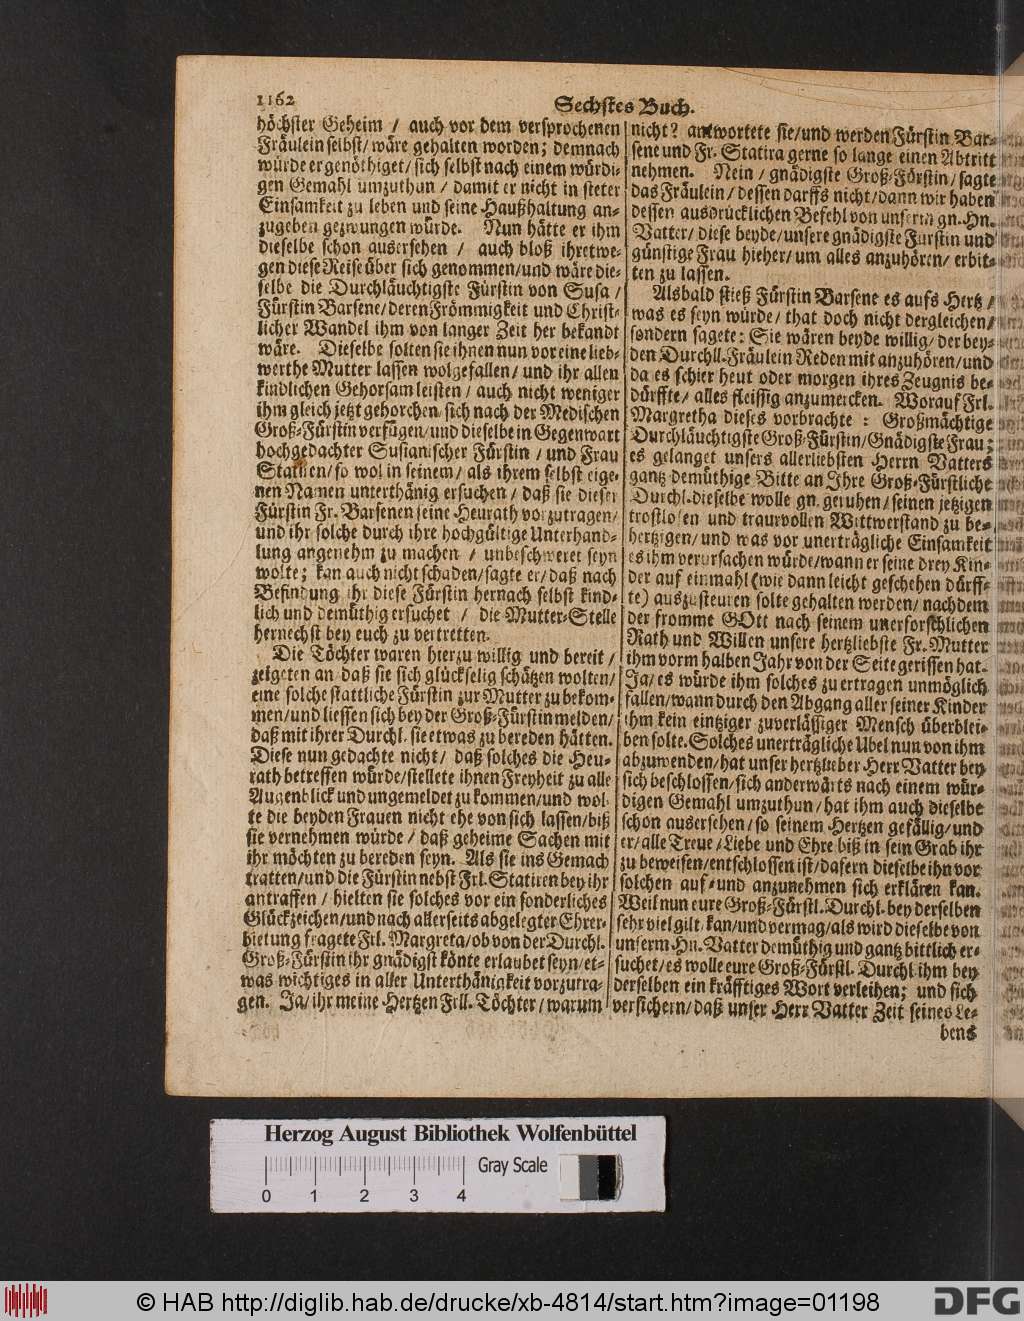 1162
Sechstes Buch.
höchster Geheim / auch vor dem versprochenen
Fräulein selbst / wäre gehalten worden; demnach
würde er genöthiget / sich selbst nach einem würdi-
gen Gemahl umzuthun / damit er nicht in steter
Einsamkeit zu leben und seine Haußhaltung an-
zugeben gezwungen würde. Nun hätte er ihm
dieselbe schon ausersehen / auch bloß ihretwe-
gen diese Reise über sich genommen / und wäre die-
selbe die Durchläuchtigste Fürstin von Susa /
Fürstin Barsene / deren Frömmigkeit und Christ-
licher Wandel ihm von langer Zeit her bekandt
wäre. Dieselbe solten sie ihnen nun vor eine lieb-
werthe Mutter lassen wolgefallen / und ihr allen
kindlichen Gehorsam leisten / auch nicht weniger
ihm gleich jetzt gehorchen / sich nach der Medischen
Groß-Fürstin verfügen / und dieselbe in Gegenwart
hochgedachter Susianischer Fürstin / und Frau
Statiren / so wol in seinem / als ihrem selbst eige-
nen Namen unterthänig ersuchen / daß sie dieser
Fürstin Fr. Barsenen seine Heurath vorzutragen /
und ihr solche durch ihre hochgültige Unterhand-
lung angenehm zu machen / unbeschweret seyn
wolte; kan auch nicht schaden / sagte er / daß nach
Befindung ihr diese Fürstin hernach selbst kind-
lich und demüthig ersuchet / die Mutter-Stelle
hernechst bey euch zu vertretten.
Die Töchter waren hierzu willig und bereit /
zeigeten an daß sie sich glückselig schätzen wolten /
eine solche stattliche Fürstin zur Mutter zu bekom-
men / und liessen sich bey der Groß-Fürstin melden /
daß mit ihrer Durchl. sie etwas zu bereden hätten.
Diese nun gedachte nicht / daß solches die Heu-
rath betreffen würde / stellete ihnen Freyheit zu alle
Augenblick und ungemeldet zu kommen / und wol-
te die beyden Frauen nicht ehe von sich lassen / biß
sie vernehmen würde / daß geheime Sachen mit
ihr möchten zu bereden seyn. Als sie ins Gemach
tratten / und die Fürstin nebst Frl. Statiren bey ihr
antraffen / hielten sie solches vor ein sonderliches
Glückzeichen / und nach allerseits abgelegter Ehrer-
bietung fragete Frl. Margreta / ob von der Durchl.
Groß-Fürstin ihr gnädigst könte erlaubet seyn / et-
was wichtiges in aller Unterthänigkeit vorzutra-
gen. Ja / ihr meine Hertzen Frll. Töchter / warum
nicht? antwortete sie / und werden Fürstin Bar-
sene und Fr. Statira gerne so lange einen Abtritt
nehmen. Nein / gnädigste Groß-Fürstin / sagte
das Fräulein / dessen darffs nicht / dann wir haben
dessen ausdrücklichen Befehl von unserm gn. Hn.
Vatter / diese beyde / unsere gnädigste Fürstin und
günstige Frau hieher / um alles anzuhören / erbit-
ten zu lassen.
Alsbald stieß Fürstin Barsene es aufs Hertz /
was es seyn würde / that doch nicht dergleichen /
sondern sagete: Sie wären beyde willig / der bey-
den Durchll. Fräulein Reden mit anzuhören / und
da es schier heut oder morgen ihres Zeugnis be-
dürffte / alles fleissig anzumercken. Worauf Frl.
Margretha dieses vorbrachte: Großmächtige
Durchläuchtigste Groß-Fürstin / Gnädigste Frau;
es gelanget unsers allerliebsten Herrn Vatters
gantz demüthige Bitte an Ihre Groß-Fürstliche
Durchl. dieselbe wolle gn. geruhen / seinen jetzigen
trostlosen und traurvollen Wittwerstand zu be-
hertzigen / und was vor unerträgliche Einsamkeit
es ihm verursachen würde / wann er seine drey Kin-
der auf einmahl (wie dann leicht geschehen dürff-
te) auszusteuren solte gehalten werden / nachdem
der fromme GOtt nach seinem unerforschlichen
Rath und Willen unsere hertzliebste Fr. Mutter
ihm vorm halben Jahr von der Seite gerissen hat.
Ja / es würde ihm solches zu ertragen unmöglich
fallen / wann durch den Abgang aller seiner Kinder
ihm kein eintziger zuverlässiger Mensch überblei-
ben solte. Solches unerträgliche Ubel nun von ihm
abzuwenden / hat unser hertzlieber Herr Vatter bey
sich beschlossen / sich anderwärts nach einem wür-
digen Gemahl umzuthun / hat ihm auch dieselbe
schon ausersehen / so seinem Hertzen gefällig / und
er / alle Treue / Liebe und Ehre biß in sein Grab ihr
zu beweisen / entschlossen ist / dafern dieselbe ihn vor
solchen auf- und anzunehmen sich erklären kan.
Weil nun eure Groß-Fürstl. Durchl. bey derselben
sehr viel gilt / kan / und vermag / als wird dieselbe von
unserm Hn. Vatter demüthig und gantz bittlich er-
suchet / es wolle eure Groß-Fürstl. Durchl. ihm bey
derselben ein kräfftiges Wort verleihen; und sich
versichern / daß unser Herr Vatter Zeit seines Le-
bens
Herzog August Bibliothek Wolfenbüttel
Gray Scale
0 1 2 3 4
© HAB http://diglib.hab.de/drucke/xb-4814/start.htm?image=01198
DFG